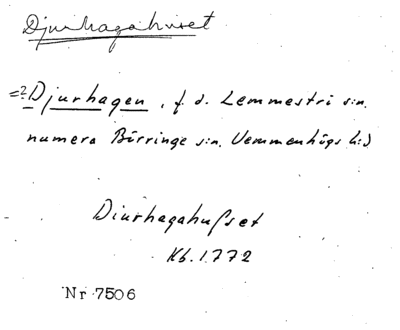 Djurhagahuset
=? Djurhagen, f. d. Lemmeströ sn.
numera Börringe sn. Vemmenhögs hd
Diurhagahusset
Kb. 1772
Nr 7506